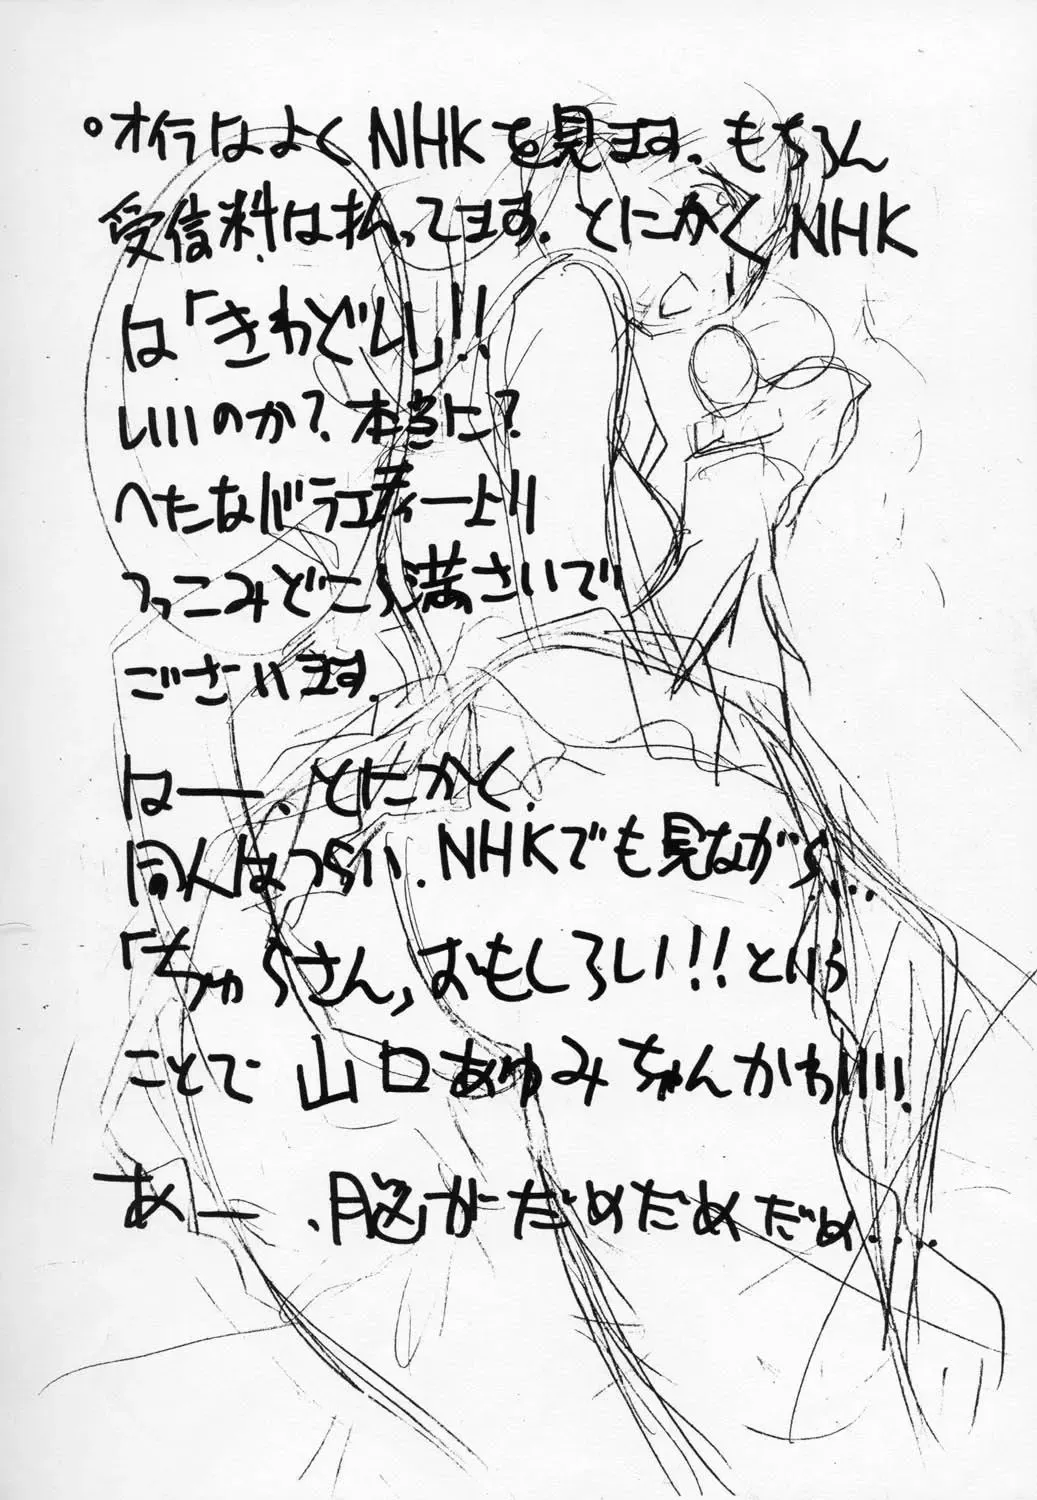 ◦オイラはよくNHKを見ます.もちろん
受信料は払ってます.とにかくNHK
は「きわどい」!!
いいのか?本当に?
へたなバラエティーより
つっこみどころ満さいで
ございます.
はー、とにかく.
同人はつらい.NHKでも見ながら....
「ちゅらさん」おもしろい!!という
ことで山口あゆみちゃんかわいい!
あー、脳がだめだめだめ....